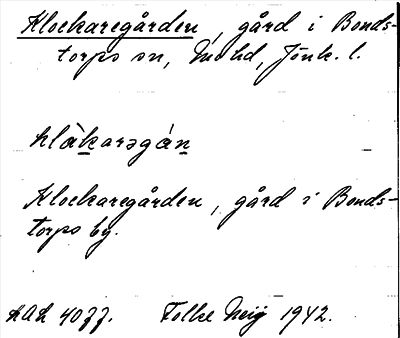 Klockaregården, gård i Bonds-
torps sn, Mo hd, Jönk. l.
klàkaragán
Klockaregården, gård i Bonds-
torps by.
Folke 1942.